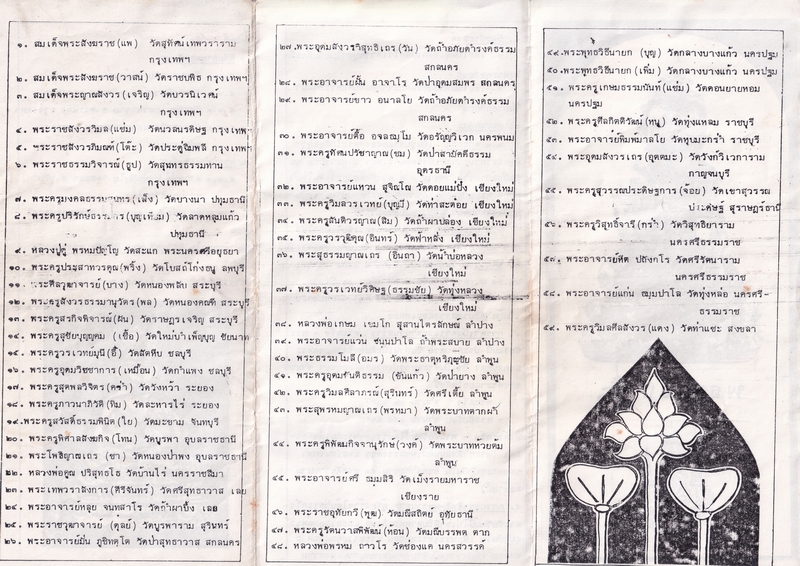 ๑. สมเด็จพระสังฆราช (แพ) วัดสุทัศน์เทพวราราม
กรุงเทพฯ
๒. สมเด็จพระสังฆราช (วาสน์) วัดราชบพิธ กรุงเทพฯ
๓. สมเด็จพระญาณสังวร (เจริญ) วัดบวรนิเวศน์
กรุงเทพฯ
๔. พระราชสังวรวิมล (แช่ม) วัดนวลนรดิษฐ กรุงเทพฯ
๕. พระราชสังวราภิมณฑ์ (โต๊ะ) วัดประดู่ฉิมพลี กรุงเทพฯ
๖. พระราชธรรมวิจารณ์ (ธูป) วัดสุนทรธรรมทาน
กรุงเทพฯ
๗. พระครูมงคลธรรมสุนทร (เส็ง) วัดบางนา ปทุมธานี
๘. พระครูปริรักษ์ธรรมาทร (บุญเทียม) วัดลาดหลุมแก้ว
ปทุมธานี
๙. หลวงปู่ดู่ พรหมปัญโญ วัดสะแก พระนครศรีอยุธยา
๑๐. พระครูประสาทวรคุณ (พริ้ง) วัดโบสถ์โก่งธนู ลพบุรี
๑๑. พระศีลวุฒาจารย์ (บาง) วัดหนองพลับ สระบุรี
๑๒. พระครูสังวรธรรมานุวัตร (พล) วัดหนองคณฑี สระบุรี
๑๓. พระครูสรกิจพิจารณ์ (ผัน) วัดราษฎรเจริญ สระบุรี
๑๔. พระครูสุชัยบุญญคม (เชื้อ) วัดใหม่บำเพ็ญบุญ ชัยนาท
๑๕. พระครูวรเวทยมุนี (อี๋) วัดสัตหีบ ชลบุรี
๑๖. พระครูอุดมวิชชาการ (เหมือน) วัดกำแพง ชลบุรี
๑๗. พระครูสุตพลวิจิตร (คร่ำ) วัดวังหว้า ระยอง
๑๘. พระครูภาวนาภิวัติ (ทิม) วัดละหารไร่ ระยอง
๑๙. พระครูสวัสดิ์ธรรมพินิต (ใย) วัดมะขาม จันทบุรี
๒๐. พระครูพิศาลสังฆกิจ (โทน) วัดบูรพา อุบลราชธานี
๒๑. พระโพธิญาณเถร (ชา) วัดหนองป่าพง อุบลราชธานี
๒๒. หลวงพ่อคูณ ปริสุทธโธ วัดบ้านไร่ นครราชสีมา
๒๓. พระเทพวราลังการ (ศรีจันทร์) วัดศรีสุทธาวาส เลย
๒๔. พระอาจารย์หลุย จนทสาโร วัดถ้ำผาบิ้ง เลย
๒๕. พระราชวุฒาจารย์ (ดุลย์) วัดบูรพาราม สุรินทร์
๒๖. พระอาจารย์มั่น ภูริทตฺโต วัดป่าสุทธาวาส สกลนคร
๒๗. พระอุดมสังวรวิสุทธิเถร (วัน) วัดถ้ำอภัยดำรงค์ธรรม
สกลนคร
๒๘. พระอาจารย์ฝั้น อาจาโร วัดป่าอุดมสมพร สกลนคร
๒๙. พระอาจารย์ขาว อนาลโย วัดถ้ำอภัยดำรงค์ธรรม
สกลนคร
๓๐. พระอาจารย์ตื้อ อจลธมฺโม วัดอรัญญวิเวก นครพนม
๓๑. พระครูทัศนปรีชาญาณ (ชม) วัดป่าสามัคคีธรรม
อุดรธานี
๓๒. พระอาจารย์แหวน สุจิณฺโณ วัดดอยแม่ปั๋ง เชียงใหม่
๓๓. พระครูวิมลวรเวทย์ (บุญมี) วัดท่าสะต๋อย เชียงใหม่
๓๔. พระครูสันติวรญาณ (สิม) วัดถ้ำผาปล่อง เชียงใหม่
๓๕. พระครูวรวุฒิคุณ (อินทร์) วัดฟ้าหลั่ง เชียงใหม่
๓๖. พระสุธรรมญาณเถร (อินถา) วัดน้ำบ่อหลวง
เชียงใหม่
๓๗. พระครูวรเวทย์วิศิษฐ (ธรรมชัย) วัดทุ่งหลวง
เชียงใหม่
๓๘. หลวงพ่อเกษม เขมโก สุสานไตรลักษณ์ ลำปาง
๓๙. พระอาจารย์แว่น ธนปาโล ถ้ำพระสบาย ลำปาง
๔๐. พระธรรมโมลี (อมร) วัดพระธาตุหริภุญชัย ลำพูน
๔๑. พระครูอุดมขันติธรรม (ขันแก้ว) วัดป่ายาง ลำพูน
๔๒. พระครูวิมลศีลาภรณ์ (สุรินทร์) วัดศรีเตี้ย ลำพูน
๔๓. พระสุพรหมญาณเถร (พรหมา) วัดพระบาทตากผ้า
ลำพูน
๔๔. พระครูพิพัฒนกิจจานุรักษ์ (วงค์) วัดพระบาทห้วยต้ม
ลำพูน
๔๕. พระอาจารย์ศรี ธมฺมสิริ วัดเม็งรายมหาราช
เชียงราย
๔๖. พระราชอุทัยกวี (พุฒ) วัดมณีสถิตย์ อุทัยธานี
๔๗. พระครูรัตนวาสพิพัฒน์ (ท้อน) วัดมณีบรรพต ตาก
๔๘. หลวงพ่อพรหม ถาวโร วัดช่องแค นครสวรรค์
๔๙. พระพุทธวิถีนายก (บุญ) วัดกลางบางแก้ว นครปฐม
๕๐. พระพุทธวิถีนายก (เพิ่ม) วัดกลางบางแก้ว นครปฐม
๕๑. พระครูเกษมธรรมนันท์ (แช่ม) วัดดอนยายหอม
นครปฐม
๕๒. พระครูศีลกิตติวัฒน์ (หนู) วัดทุ่งแหลม ราชบุรี
๕๓. พระอาจารย์พิมพ์มาลโย วัดหุบมะกร่ำ ราชบุรี
๕๔. พระอุดมสังวรเถร (อุตตมะ) วัดวังก์วิเวการาม
กาญจนบุรี
๕๕. พระครูสุวรรณประดิษฐการ (จ้อย) วัดเขาสุวรรณ
ประดิษฐ์ สุราษฎร์ธานี
๕๖. พระครูวิสุทธิ์จารี (กร่ำ) วัดวิสุทธิยาราม
นครศรีธรรมราช
๕๗. พระอาจารย์ศีต ปภังกโร วัดศรีรัตนาราม
นครศรีธรรมราช
๕๘. พระอาจารย์แก่น ธมฺมปาโล วัดทุ่งหล่อ นครศรี-
ธรรมราช
๕๙. พระครูวิมลศีลสังวร (แดง) วัดท่าแซะ สงขลา